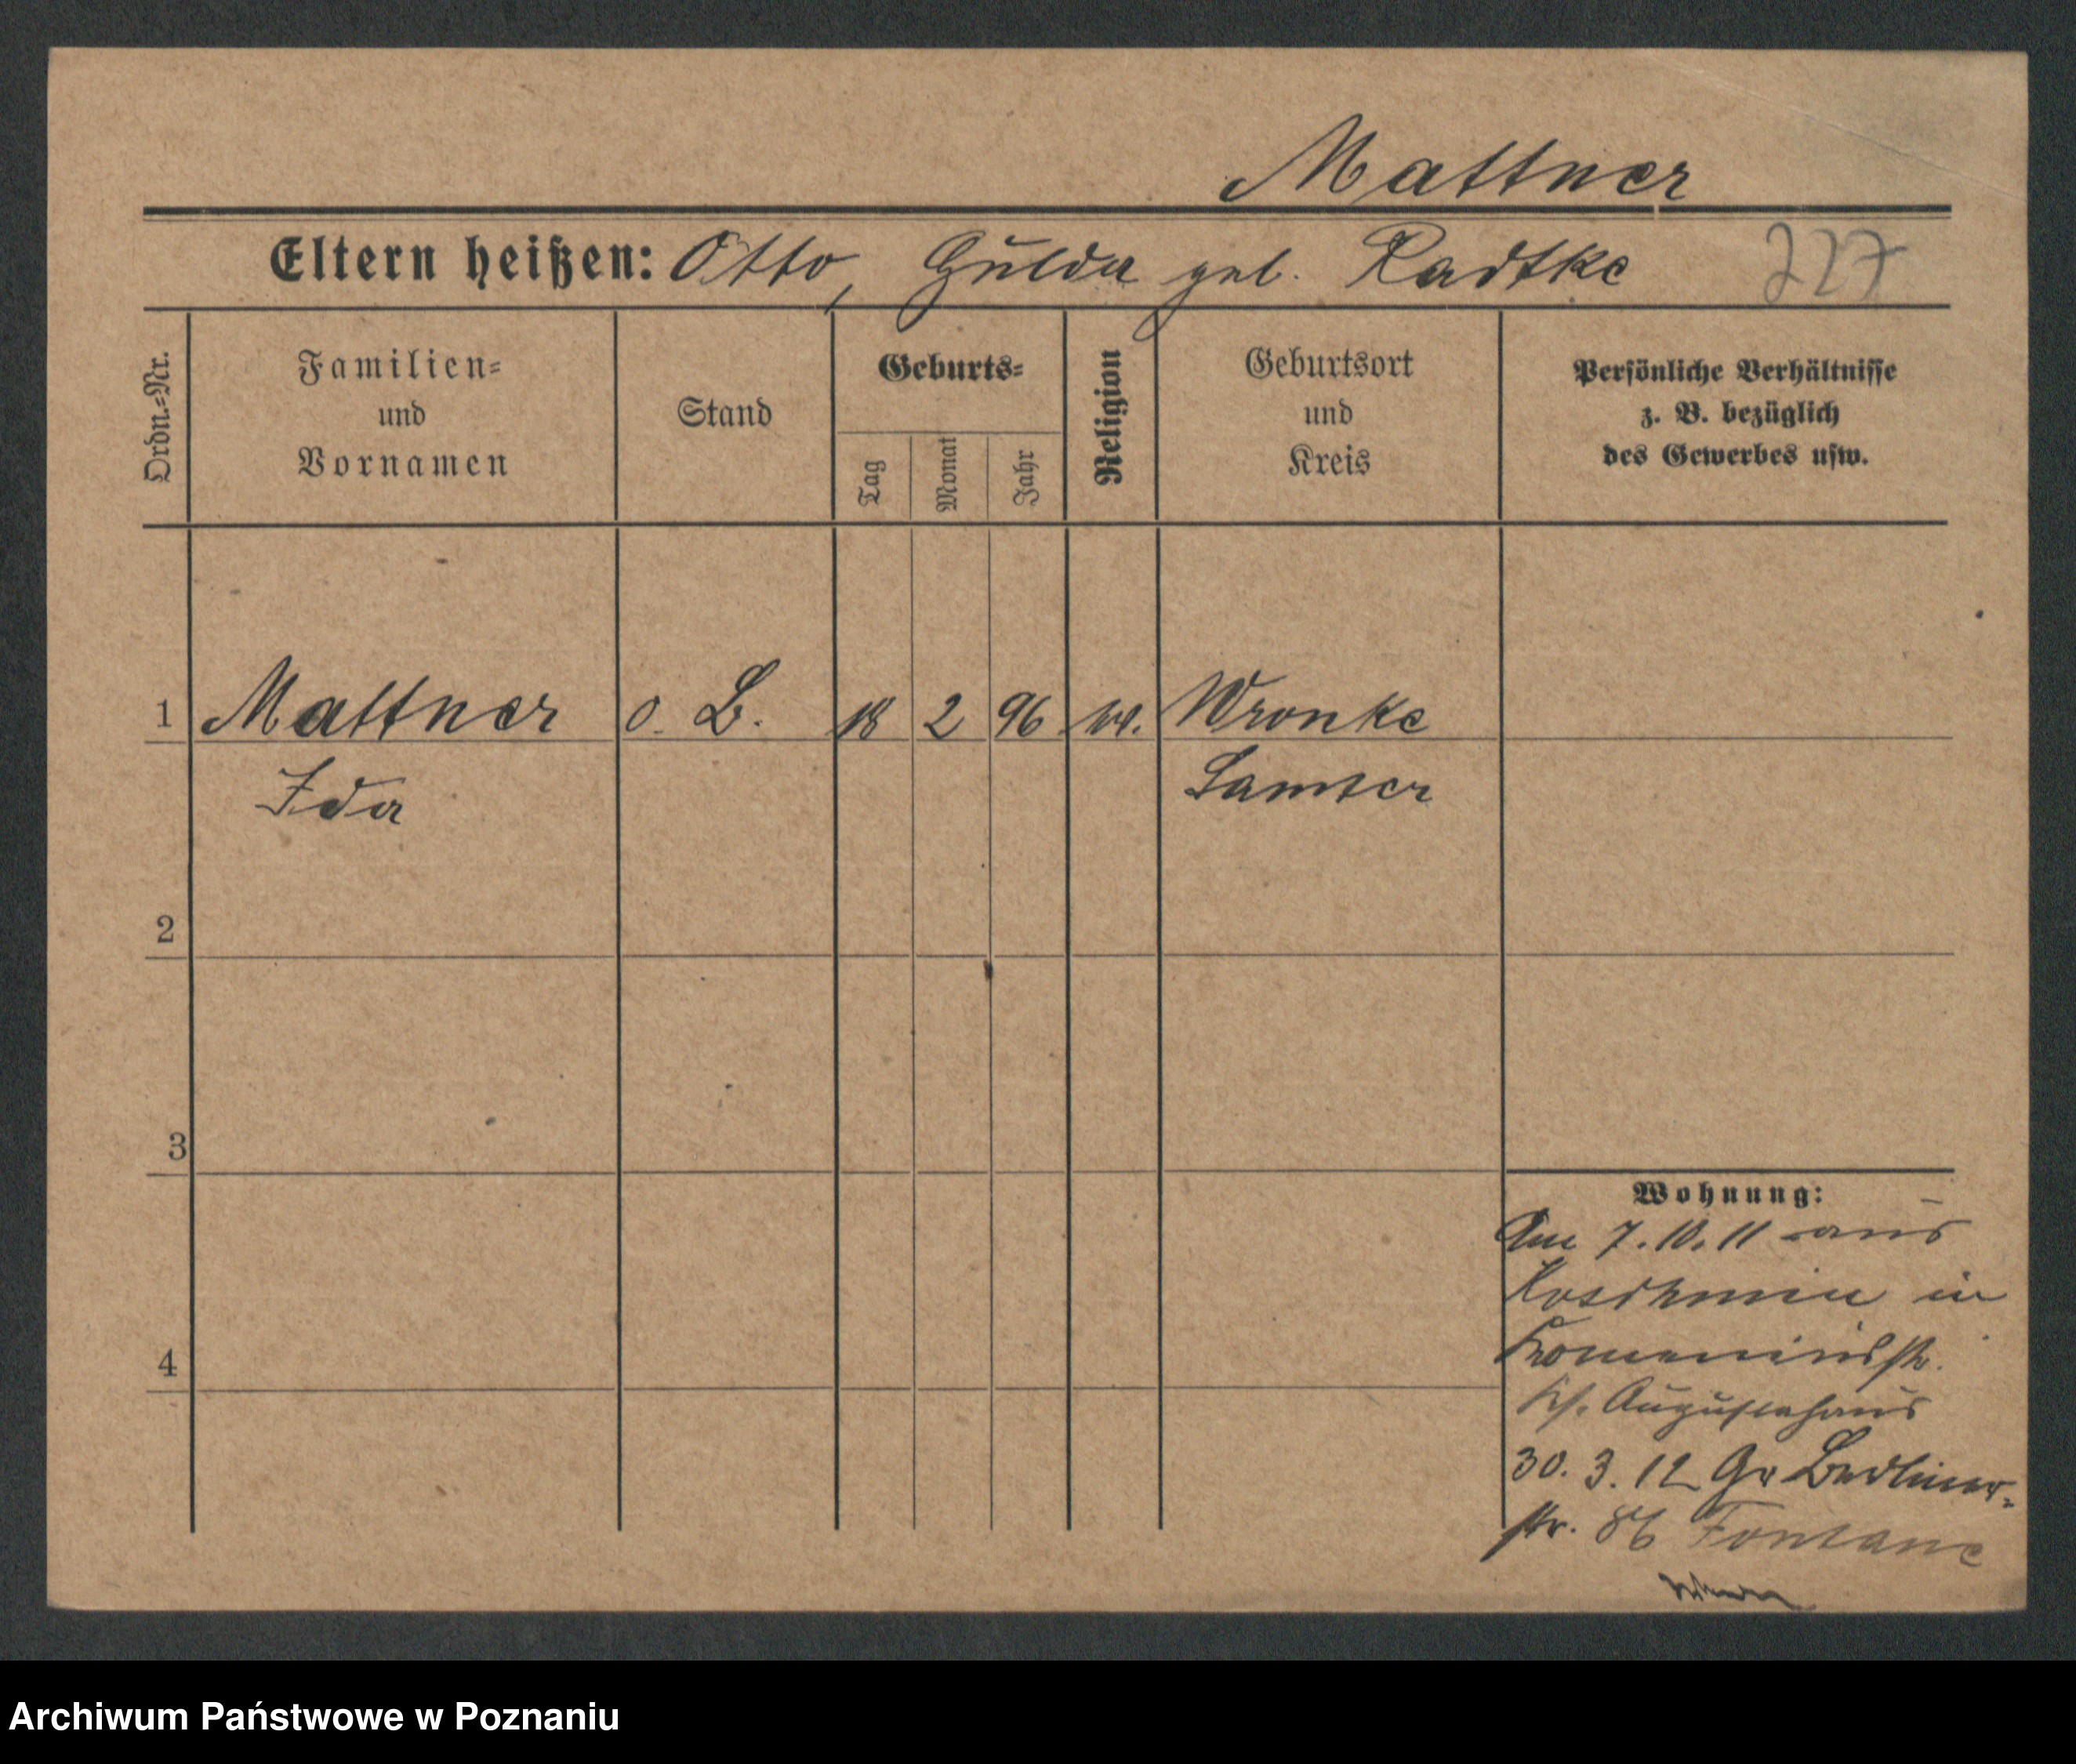 Mattner
Eltern heißen: Otto, Hulda geb. Radtke 227
Ordn.=Nr.
Familien=
und
Vornamen
Stand
Geburts=
Tag
Monat
Jahr
Religion
Geburtsort
und
Kreis
Persönliche Verhältnisse
z. B. bezüglich
des Gewerbes usw.
1 Mattner o. B. 18 2 96 ev. Wronke
Ida Samter
2
3
4
Wohnung:
Am 7.10.11 aus
Koschmin in
str.
Augustahaus
30. 3. 12 Gr Berliner=
str. 86 Fontane
Archiwum Państwowe w Poznaniu